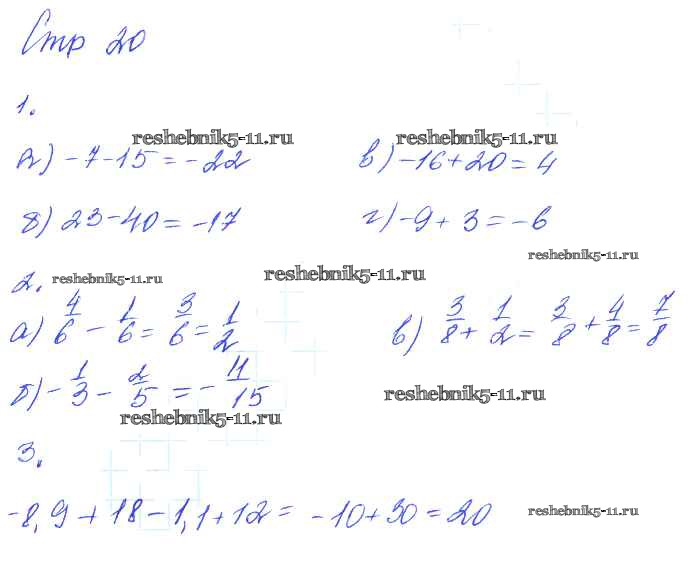 Стр 20
1.
reshebnik5-11.ru reshebnik5-11.ru
а) -7-15=-22 в) -16+20=4
б) 23-40=-17 г) -9+3=-6
reshebnik5-11.ru
2. reshebnik5-11.ru reshebnik5-11.ru
а) 4/6 - 1/6 = 3/6 = 1/2 в) 3/8 + 1/2 = 3/8 + 4/8 = 7/8
б) -1/3 - 2/5 = -11/15
reshebnik5-11.ru
reshebnik5-11.ru
3.
-8,9+18-1,1+12= -10+30=20 reshebnik5-11.ru